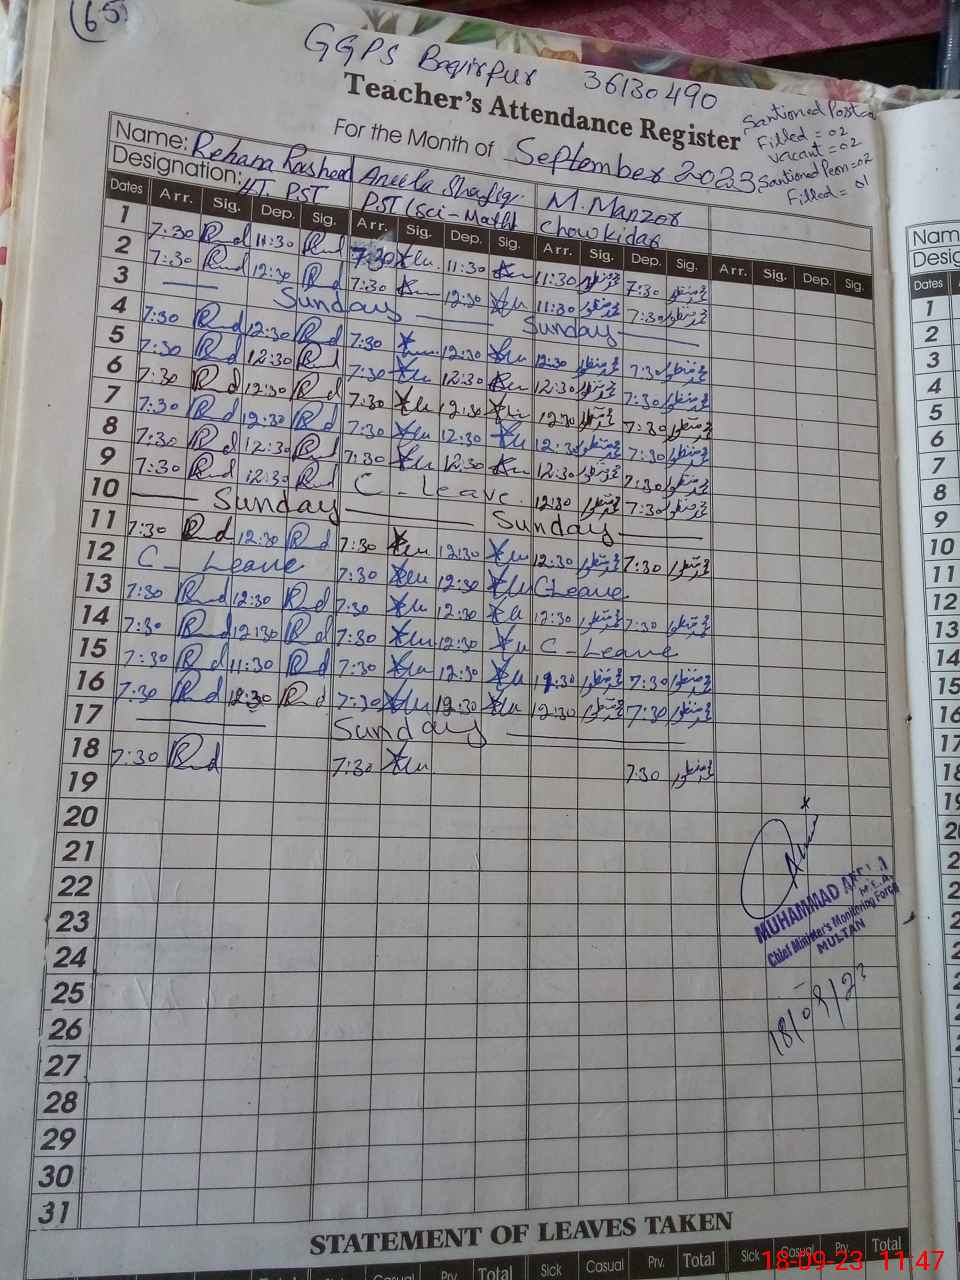 (65)
GGPS Baqirpur 36130490
Teacher's Attendance Register
For the Month of September 2023
Santioned Post
Filled = 02
vacant = 02
Santioned Peon = 02
Filled = 01
Name: Rehana Rasheed Aneela Shafiq. M. Manzor
Designation: HT PST PST (Sci-Math) Chowkidar
Dates Arr. Sig. Dep. Sig. Arr. Sig. Dep. Sig. Arr. Sig. Dep. Sig. Arr. Sig. Dep. Sig.
1 7:30 Rd 11:30 Rd 7:30 11:30 11:30 محمد منظور 7:30 محمد منظور
2 7:30 Rd 12:30 Rd 7:30 12:30 11:30 محمد منظور 7:30 محمد منظور
3 Sunday Sunday
4 7:30 Rd 12:30 Rd 7:30 12:30 12:30 محمد منظور 7:30 محمد منظور
5 7:30 Rd 12:30 Rd 7:30 12:30 12:30 محمد منظور 7:30 محمد منظور
6 7:30 Rd 12:30 Rd 7:30 12:30 12:30 محمد منظور 7:30 محمد منظور
7 7:30 Rd 12:30 Rd 7:30 12:30 12:30 محمد منظور 7:30 محمد منظور
8 7:30 Rd 12:30 Rd 7:30 12:30 12:30 محمد منظور 7:30 محمد منظور
9 7:30 Rd 12:30 Rd C-Leave. 12:30 محمد منظور 7:30 محمد منظور
10 Sunday Sunday
11 7:30 Rd 12:30 Rd 7:30 12:30 12:30 محمد منظور 7:30 محمد منظور
12 C-Leave 7:30 12:30 C Leave
13 7:30 Rd 12:30 Rd 7:30 12:30 12:30 محمد منظور 7:30 محمد منظور
14 7:30 Rd 12:30 Rd 7:30 12:30 C-Leave
15 7:30 Rd 11:30 Rd 7:30 12:30 11:30 محمد منظور 7:30 محمد منظور
16 7:30 Rd 12:30 Rd 7:30 12:30 12:30 محمد منظور 7:30 محمد منظور
17 Sunday
18 7:30 Rd 7:30 7:30 محمد منظور
19
20
21
22
23
24
25
26
27
28
29
30
31
MUHAMMAD
M.E.A
Chief Minister's Monitoring Force
MULTAN
18/09/23
STATEMENT OF LEAVES TAKEN
Casual Prv. Total Sick Casual Prv. Total Sick Casual Prv. Total
Name
Desig
Dates
1
2
3
4
5
6
7
8
9
10
11
12
13
14
15
16
17
18
19
20
18-09-23 11:47